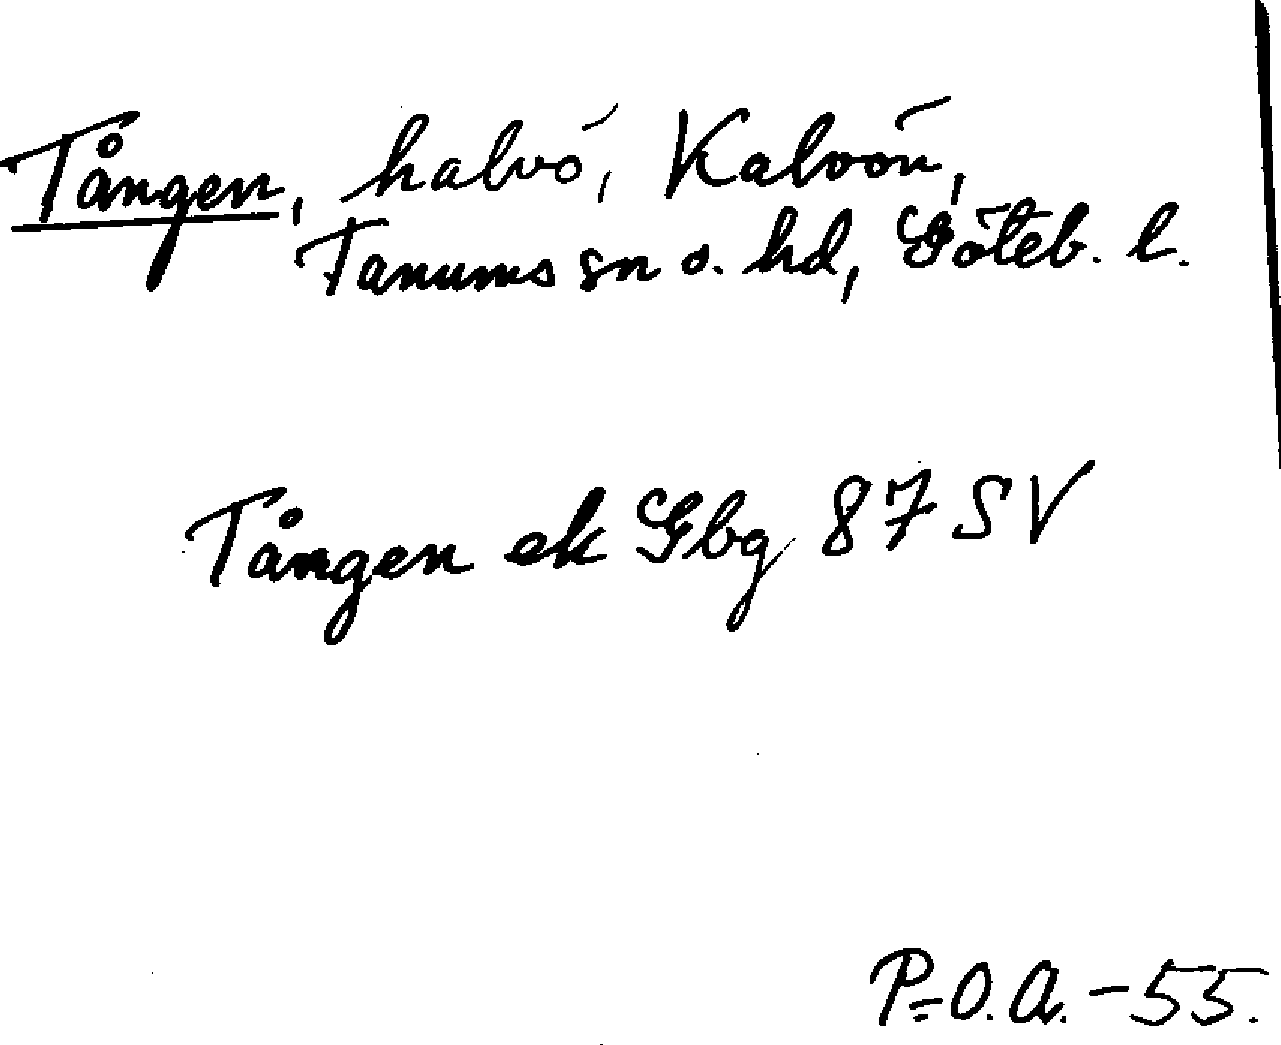 Tången, halvö, Kalvön,
Tanums sn o. hd, Göteb. l.
Tången ek Gbg 87 SV
P=O.A.-55.